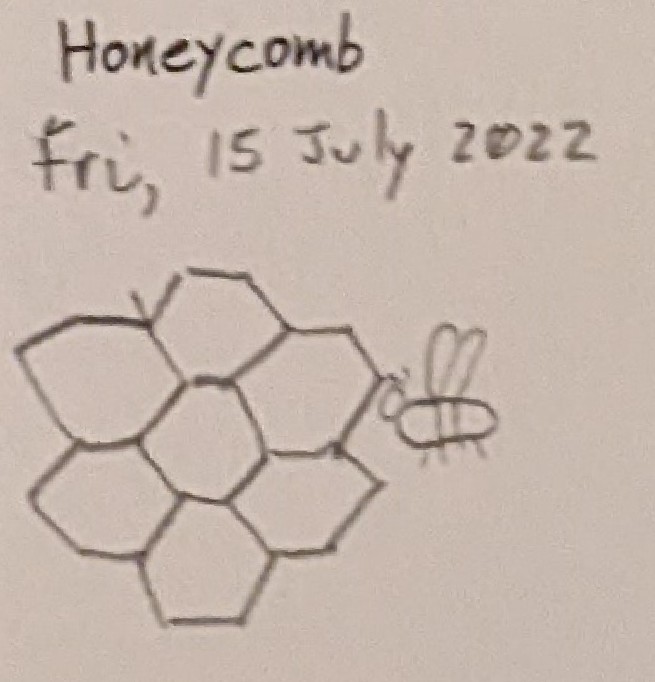 Honeycomb
Fri, 15 July 2022